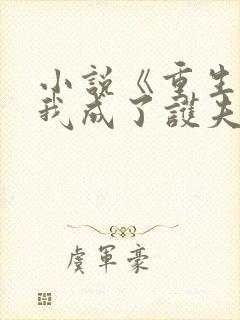 小説《重生
我成了護夫
虞軍豪